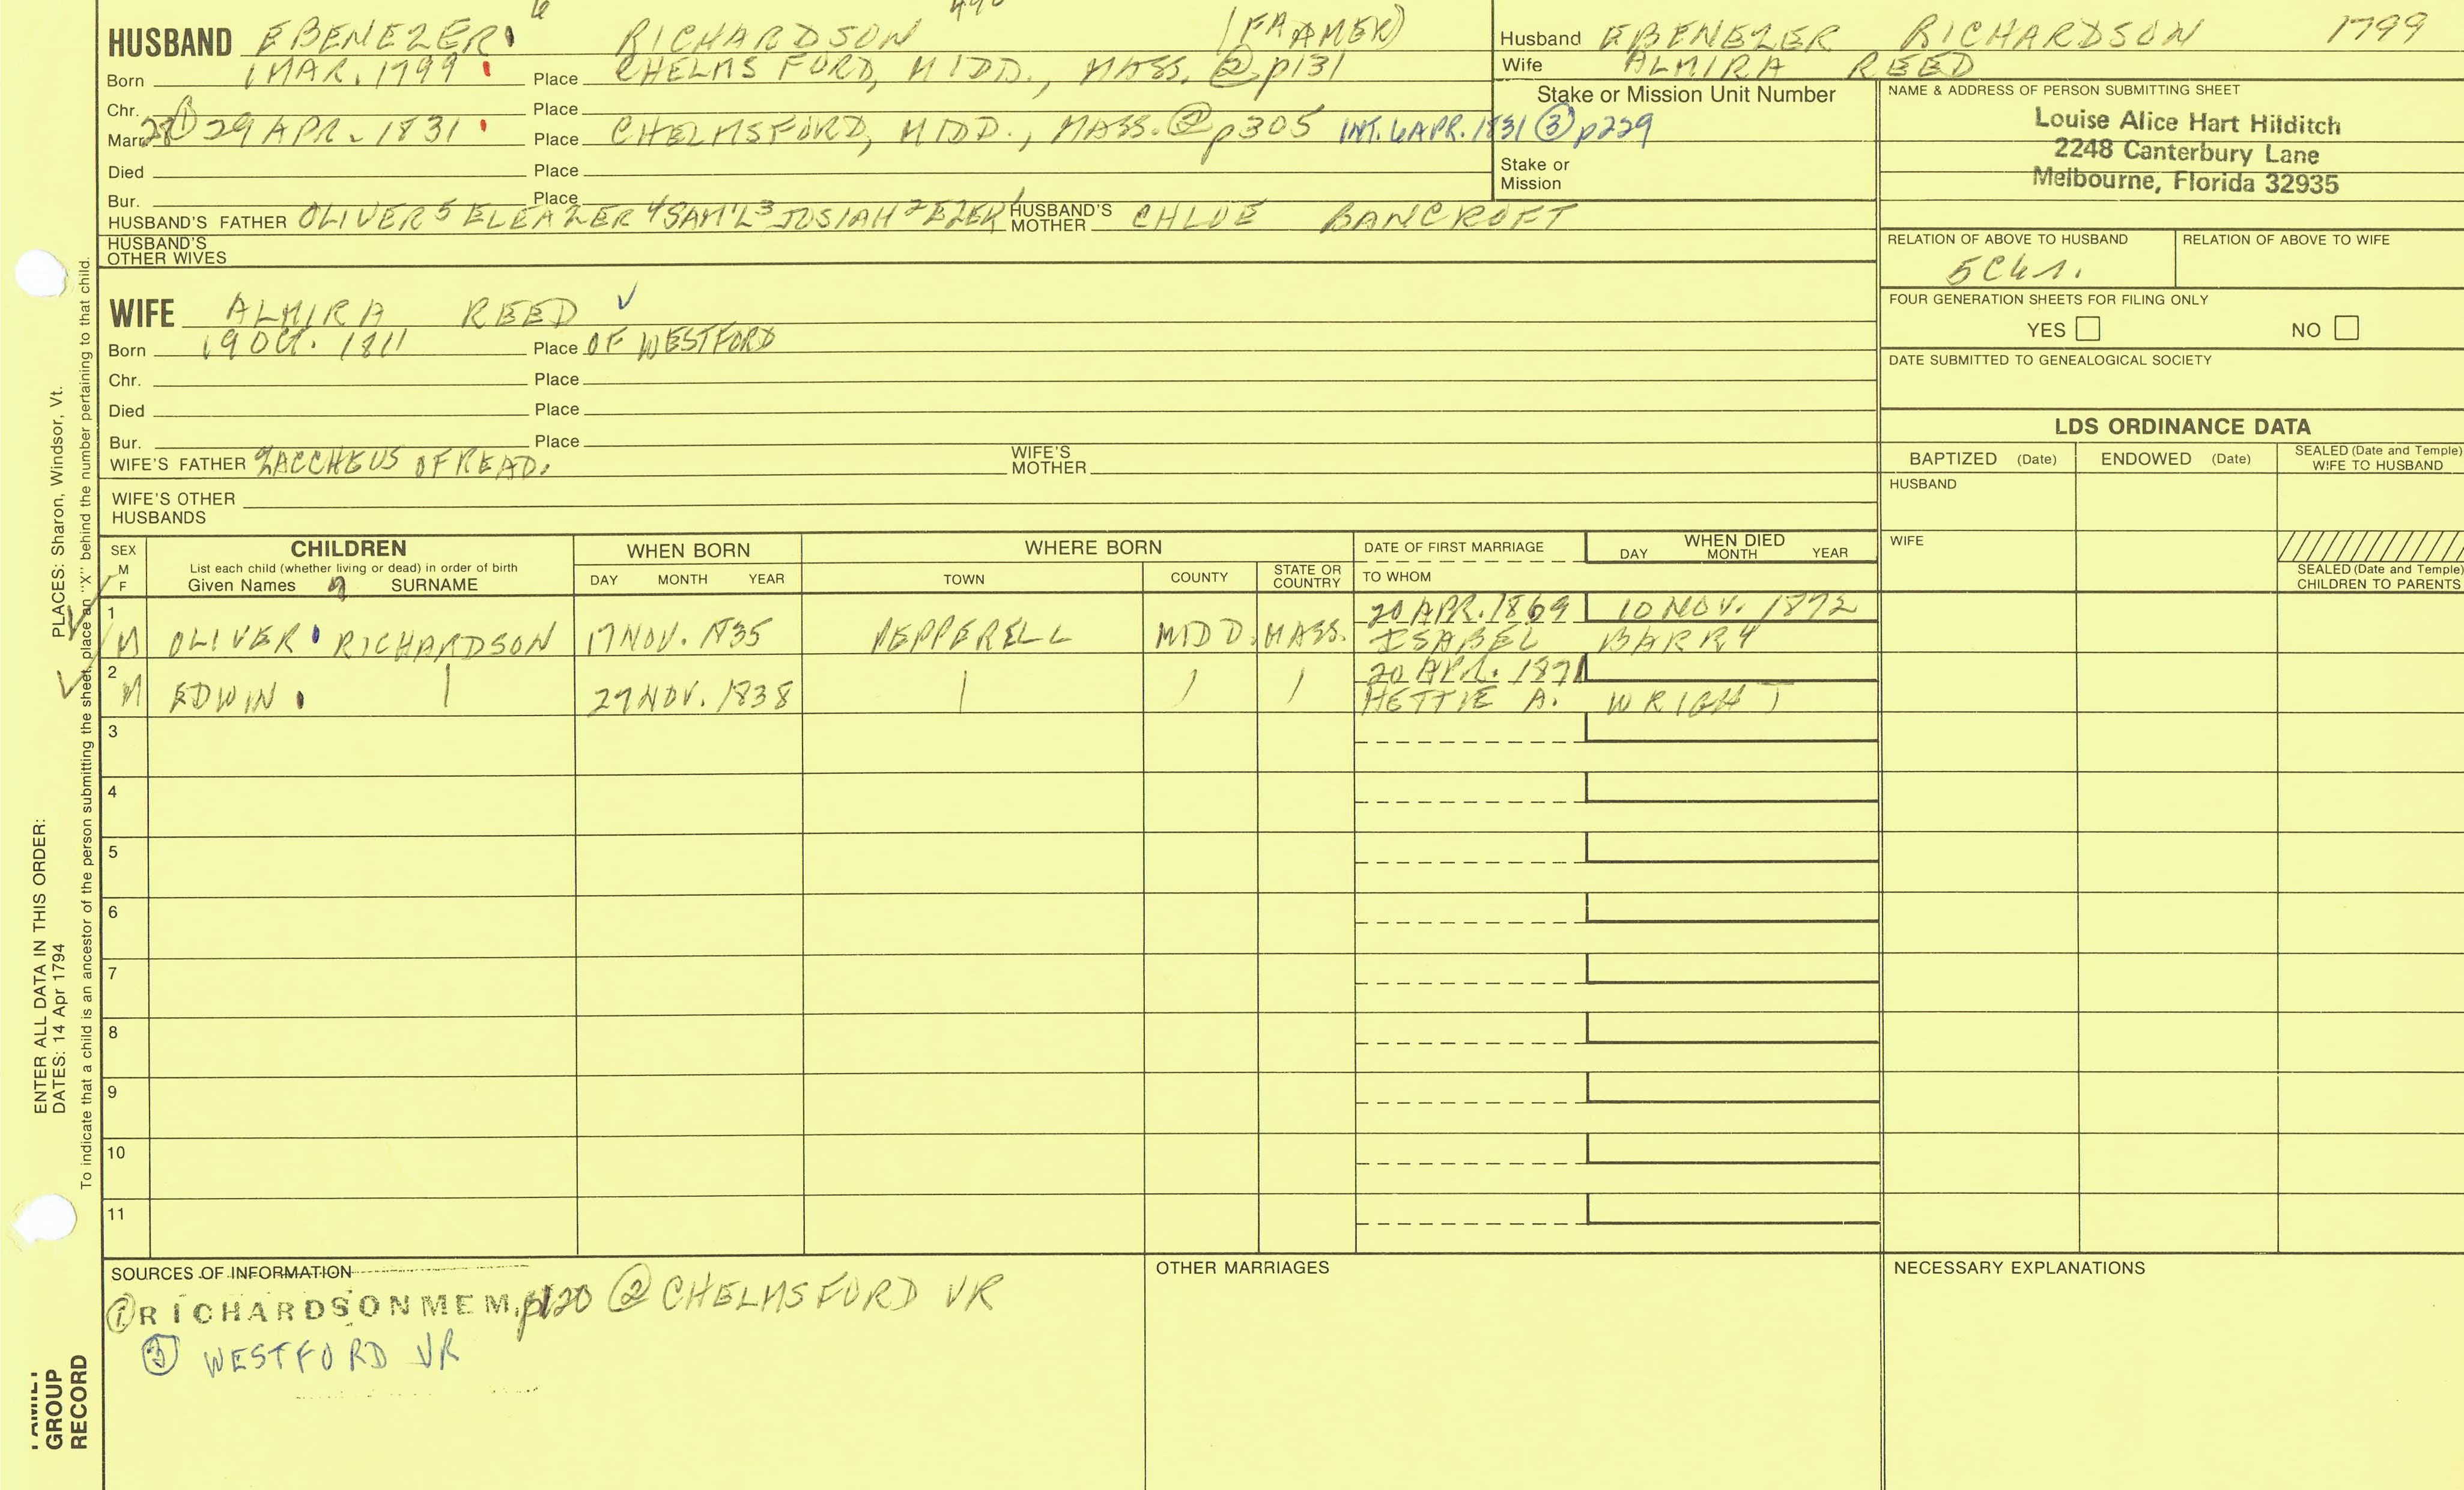 HUSBAND EBENEZER 6 RICHARDSON (FRAMER)
Born 1 MAR. 1799 Place CHELMSFORD, MIDD., MASS. ② p131
Chr. Place
Marr. 29 APR. 1831 Place CHELMSFORD, MIDD., MASS. ② p305 INT. 6 APR. 1831 ③ p229
Died Place
Bur. Place
HUSBAND'S FATHER OLIVER 5 ELEAZER 4 SAM'L 3 JOSIAH 2 EZEK' HUSBAND'S MOTHER CHLOE BANCROFT
HUSBAND'S OTHER WIVES
Husband EBENEZER RICHARDSON 1799
Wife ALMIRA REED
Stake or Mission Unit Number
Stake or Mission
NAME & ADDRESS OF PERSON SUBMITTING SHEET
Louise Alice Hart Hilditch
2248 Canterbury Lane
Melbourne, Florida 32935
RELATION OF ABOVE TO HUSBAND RELATION OF ABOVE TO WIFE
FOUR GENERATION SHEETS FOR FILING ONLY
YES NO
DATE SUBMITTED TO GENEALOGICAL SOCIETY
WIFE ALMIRA REED
Born 19 OCT. 1811 Place OF WESTFORD
Chr. Place
Died Place
Bur. Place
WIFE'S FATHER ZACCHEUS OF READ. WIFE'S MOTHER
WIFE'S OTHER HUSBANDS
LDS ORDINANCE DATA
BAPTIZED (Date) ENDOWED (Date) SEALED (Date and Temple) WIFE TO HUSBAND
HUSBAND
WIFE
SEALED (Date and Temple) CHILDREN TO PARENTS
SEX M F CHILDREN WHEN BORN WHERE BORN DATE OF FIRST MARRIAGE WHEN DIED
List each child (whether living or dead) in order of birth DAY MONTH YEAR
Given Names SURNAME DAY MONTH YEAR TOWN COUNTY STATE OR COUNTRY TO WHOM
1 20 APR. 1869 10 NOV. 1872
M OLIVER RICHARDSON 17 NOV. 1835 PEPPERELL MIDD. MASS. ISABEL BARRY
2 20 APR. 1871
M EDWIN 27 NOV. 1838 HETTIE A. WRIGHT
3
4
5
6
7
8
9
10
11
SOURCES OF INFORMATION
① RICHARDSON MEM. p120 ② CHELMSFORD VR
③ WESTFORD VR
OTHER MARRIAGES
NECESSARY EXPLANATIONS
PLACES: Sharon, Windsor, Vt.
To indicate that a child is an ancestor of the person submitting the sheet, place an "X" behind the number pertaining to that child.
ENTER ALL DATA IN THIS ORDER:
DATES: 14 Apr 1794
GROUP
RECORD